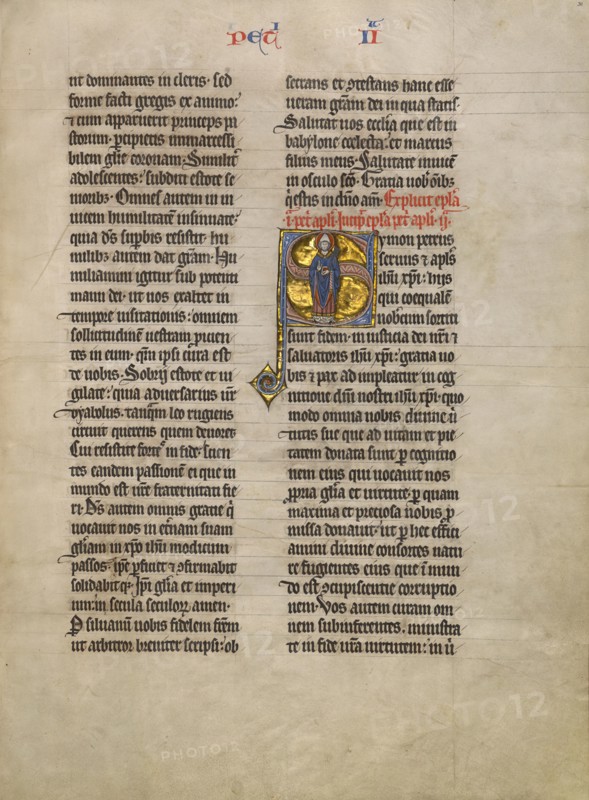 PET I II
ut dominantes in cleris· sed
forme facti gregis ex animo·
⁊ cum apparuerit princeps pa
storum· percipietis inmarcessi
bilem glīe coronam·Similit̄
adolescentes: subditi estote se
nioribꝫ· Omnes autem in in
uicem humilitatē insinuate·
quia ds̄ suꝑbis resistit· hu
milibꝫ autem dat grām· Hu
miliamini igitur sub potenti
manu dei· ut uos exaltet in
tempore uisitationis: omnem
sollicitudinē uestram ꝓicien
tes in eum· qm̄ ipsi cura est
de uobis· Sobrij estote et ui
gilate: quia aduersarius ur̄
dyabolus· tanqm̄ leo rugiens
circuit querens quem deuoret
Cui resistite forteˢ in fide· scien
tes eandem passionē ei que in
mundo est ur̄e fraternitati fie
ri· Ds̄ autem omnis gratie q̇
uocauit nos in et̄nam suam
glīam in xp̄o ihū modicum
passos· ip̄e ꝑficiet ⁊ ꝯfirmabit
solidabitqꝫ· Ip̄i glīa et imperi
um: in secula seculoꝝ amen·
P siluanū uobis fidelem frēm
ut arbitror breuiter scripsi: ob
secrans et ꝯtestans hanc esse
ueram grām dei in qua statis·
Salutat uos ecclīa que est in
babylone coelecta: et marcus
filius meus· Salutate inuicē
in osculo sc̄o· Gratia uob̄ om̄ibꝫ
q̇ estis in xp̄o am̄· Explicit epl̄a
·i· pet̄ apl̄i· Incip̄ epl̄a pet̄ apl̄i ·ij·
Symon petrus
seruus ⁊ apl̄s
ihū xp̄i: hijs
qui coequalē
nobcum sortiti
sunt fidem· in iusticia dei nr̄i ⁊
saluatoris ihū xp̄i: gratia uo
bis ⁊ pax adimpleatur in cog
nitione dn̄i nostri ihū xp̄i· quo
modo omnia nobis diuine u̇
tutis sue que ad uitam et pie
tatem donata sunt ꝑ cognitio
nem eius qui uocauit nos
ꝓpria glīa et uirtute· ꝑ quam
maxima et preciosa nobis ꝓ
missa donauit· ut ꝑ hec effici
amini diuine consortes natu
re fugientes eius que ī mun
do est ꝯcupiscentie corruptio
nem· Vos autem curam om
nem subinferentes· ministra
te in fide ur̄a uirtutem: in u̇
PHOTO12